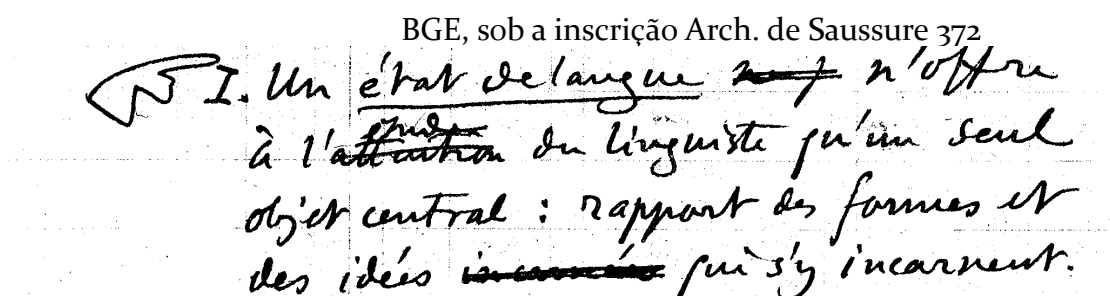 BGE, sob a inscrição Arch. de Saussure 372
I. Un état de langue n'offre
à l'étude du linguiste qu'un seul
objet central : rapport des formes et
des idées qui s'y incarnent.